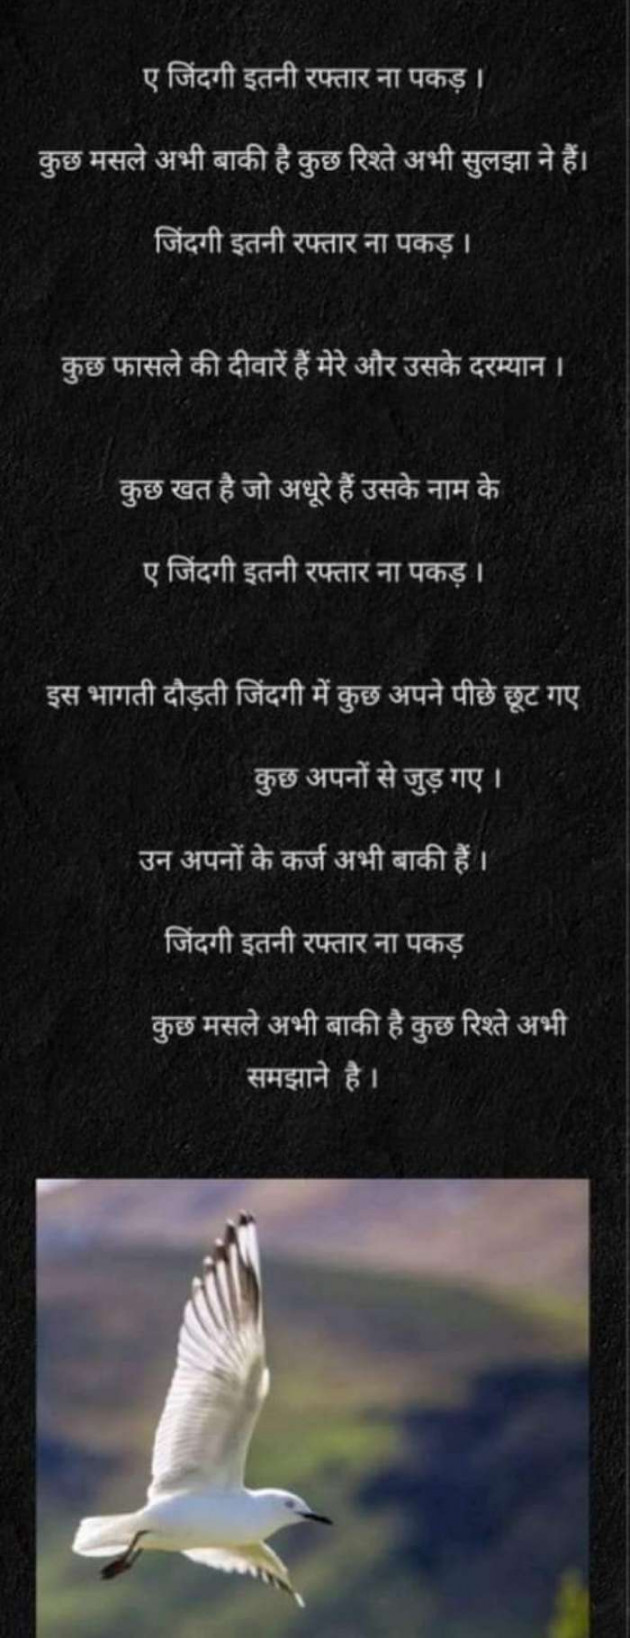 ए जिंदगी इतनी रफ्तार ना पकड़ ।
कुछ मसले अभी बाकी है कुछ रिश्ते अभी सुलझा ने हैं।
जिंदगी इतनी रफ्तार ना पकड़ ।
कुछ फासले की दीवारें हैं मेरे और उसके दरम्यान ।
कुछ खत है जो अधूरे हैं उसके नाम के
ए जिंदगी इतनी रफ्तार ना पकड़ ।
इस भागती दौड़ती जिंदगी में कुछ अपने पीछे छूट गए
कुछ अपनों से जुड़ गए ।
उन अपनों के कर्ज अभी बाकी हैं ।
जिंदगी इतनी रफ्तार ना पकड़
कुछ मसले अभी बाकी है कुछ रिश्ते अभी
समझाने है ।